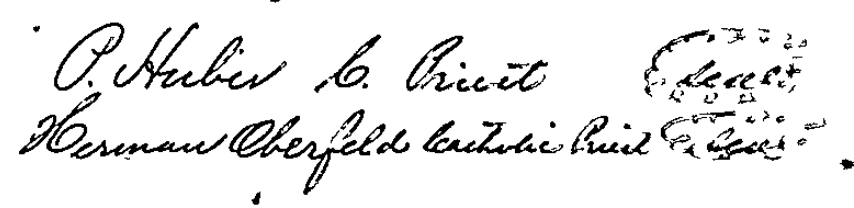 P. Huber C. Priest Seal
Herman Oberfeld Catholic Priest Seal